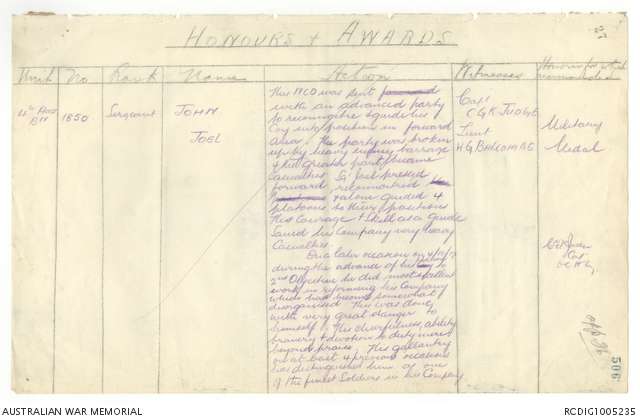 HONOURS & AWARDS
27
Unit No Rank Name Action Witnesses Honour for which recommended
1850 Sergeant JOHN JOEL
This NCO was sent forward
with an advanced party
to reconnoitre & guide his
Coy into position in forward
area. The party was broken
up by heavy enemy barrage
& the greater part became
casualties. Sgt Joel pressed
forward reconnoitred
& alone guided 4
platoons to their positions
His Courage & Skill as a guide
saved his Company very heavy
Casualties.
On a later occasion on
during the advance of his Coy to
2nd Objective he did most excellent
work in reforming his Company
which had become somewhat
disorganised. This was done
with very great danger to
himself. His cheerfulness, ability
bravery & devotion to duty were
beyond praise. His gallantry
on at least 4 previous occasions
has distinguished him as one
of the finest Soldiers in his Company
Capt
C G K JUDGE
Lieut
H G BALCOMBE
Military
Medal
Capt
506
AUSTRALIAN WAR MEMORIAL
RCDIG1005235